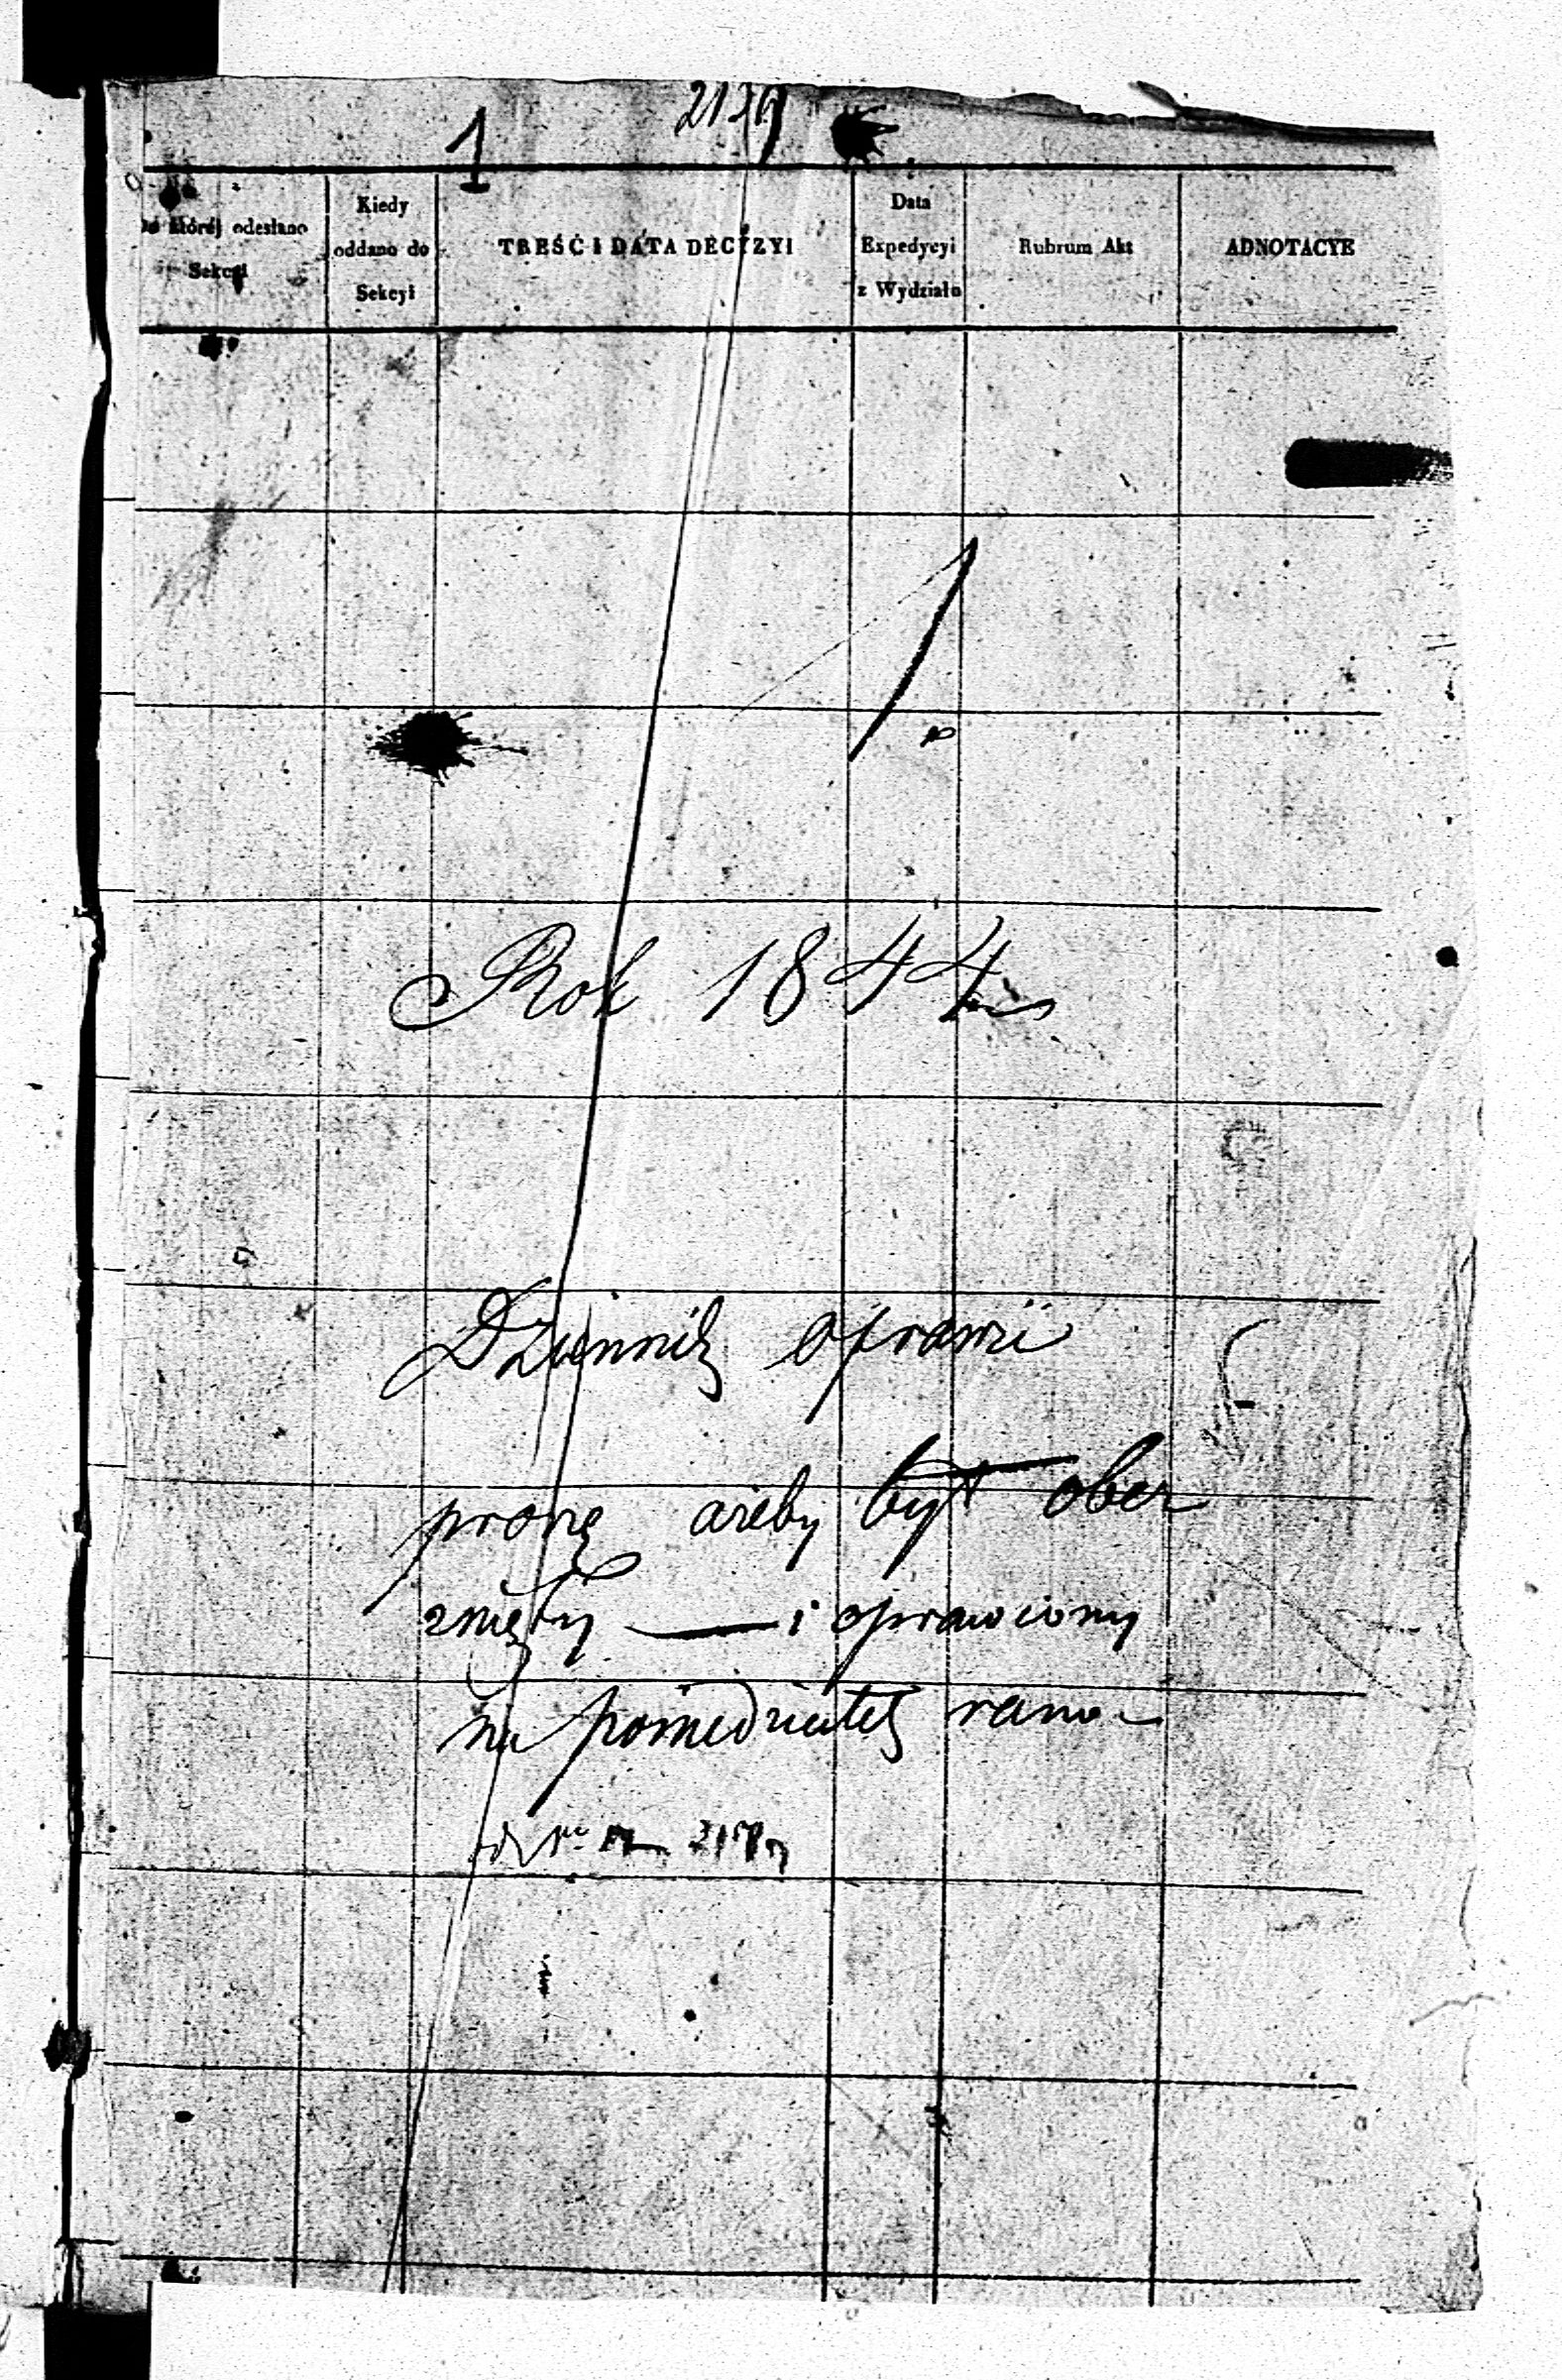 1
Do której odesłano Sekcyi
Kiedy oddano do Sekcyi
TREŚĆ I DATA DECYZYI
Data Expedycyi z Wydziału
Rubrum Akt
ADNOTACYE
1
Rok 1844
Dziennik oprawić
proszę ażeby był ober
znięty — i oprawiony
na poniedziałek rano